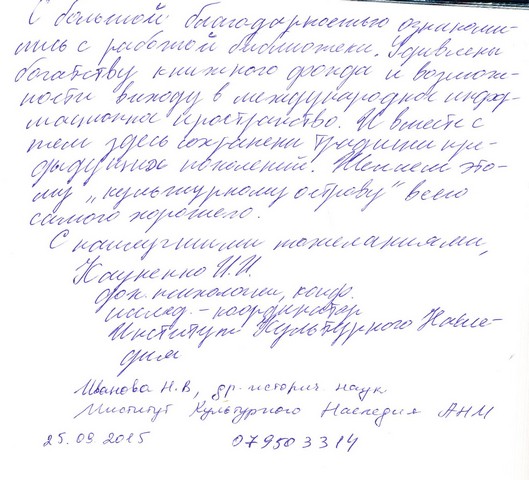 С большой благодарностью ознакоми-
лись с работой библиотеки. Удивлены
богатству книжного фонда и возмож-
ности выходу в международное инфор-
мационное пространство. И вместе с
тем здесь сохранены традиции пре-
дыдущих поколений. Желаем это-
му „культурному острову" всего
самого хорошего.
С наилучшими пожеланиями,
Кауненко И.И.
док. психологии, конф.
исслед. - координатор
Институт Культурного Насле-
дия
Иванова Н.В, др. историч. наук
Институт Культурного Наследия АНМ
25.09.2015 079503314